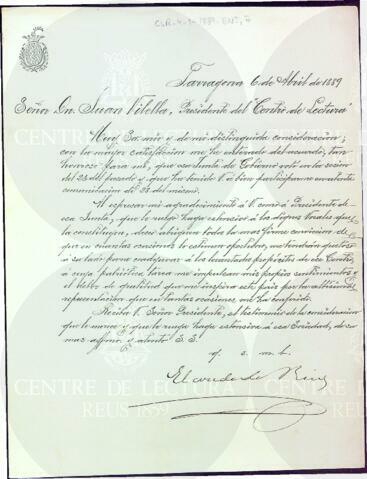 Tarragona 6 de Abril de 1889
Señor Dn. Juan Vilella, Presidente del "Centro de Lectura"
Muy Sr. mio y de mi distinguida consideracion:
con la mayor satisfaccion me he enterado del acuerdo, tan
honroso para mi, que esa Junta de Gobierno votó en la sesion
del 23 del pasado y que ha tenido V. á bien participarme en atenta
comunicacion del mismo.
Al expresar mi agradecimiento á V. como á Presidente de
esa Junta, que le ruego haga extensivo á los dignos Vocales que
la constituyen, deseo abriguen todos la mas firme conviccion de
que en cuantas ocasiones lo estimen oportuno, me tendrán
á su lado para coadyuvar á los levantados propósitos de ese Centro,
á cuya patriótica tarea me impulsan mis propios sentimientos y
el deber de gratitud que me inspira este pais por la
representacion que en tantas ocasiones me ha conferido.
Reciba V. Señor Presidente, el testimonio de la consideracion
que le merece y que le ruego haga extensiva á esa Sociedad, de su
mas affmo. y atento S. S.
q. s. m. b.
El conde de Rius
CENTRE DE LECTURA
REUS 1859